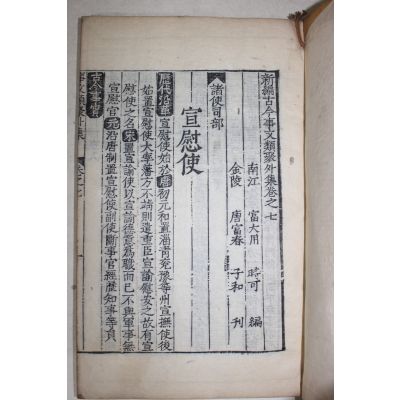 新編古今事文類聚外集卷之七
南江 富大用 時可 編
金陵 唐富春 子和 刊
諸使司部
宣慰使
歷代沿革 宣慰使始於唐初元和置淄青兗豫等州宣撫使後
始置宣慰使大學藩方不靖則遣重臣宣諭慰安之故有宣
慰使之名宋置宣諭使以宣諭德意為職而已不與軍事
宣慰官元沿唐制置宣慰使副使斷事官經歷知事等員
古今事實
事文類聚外集 卷之七